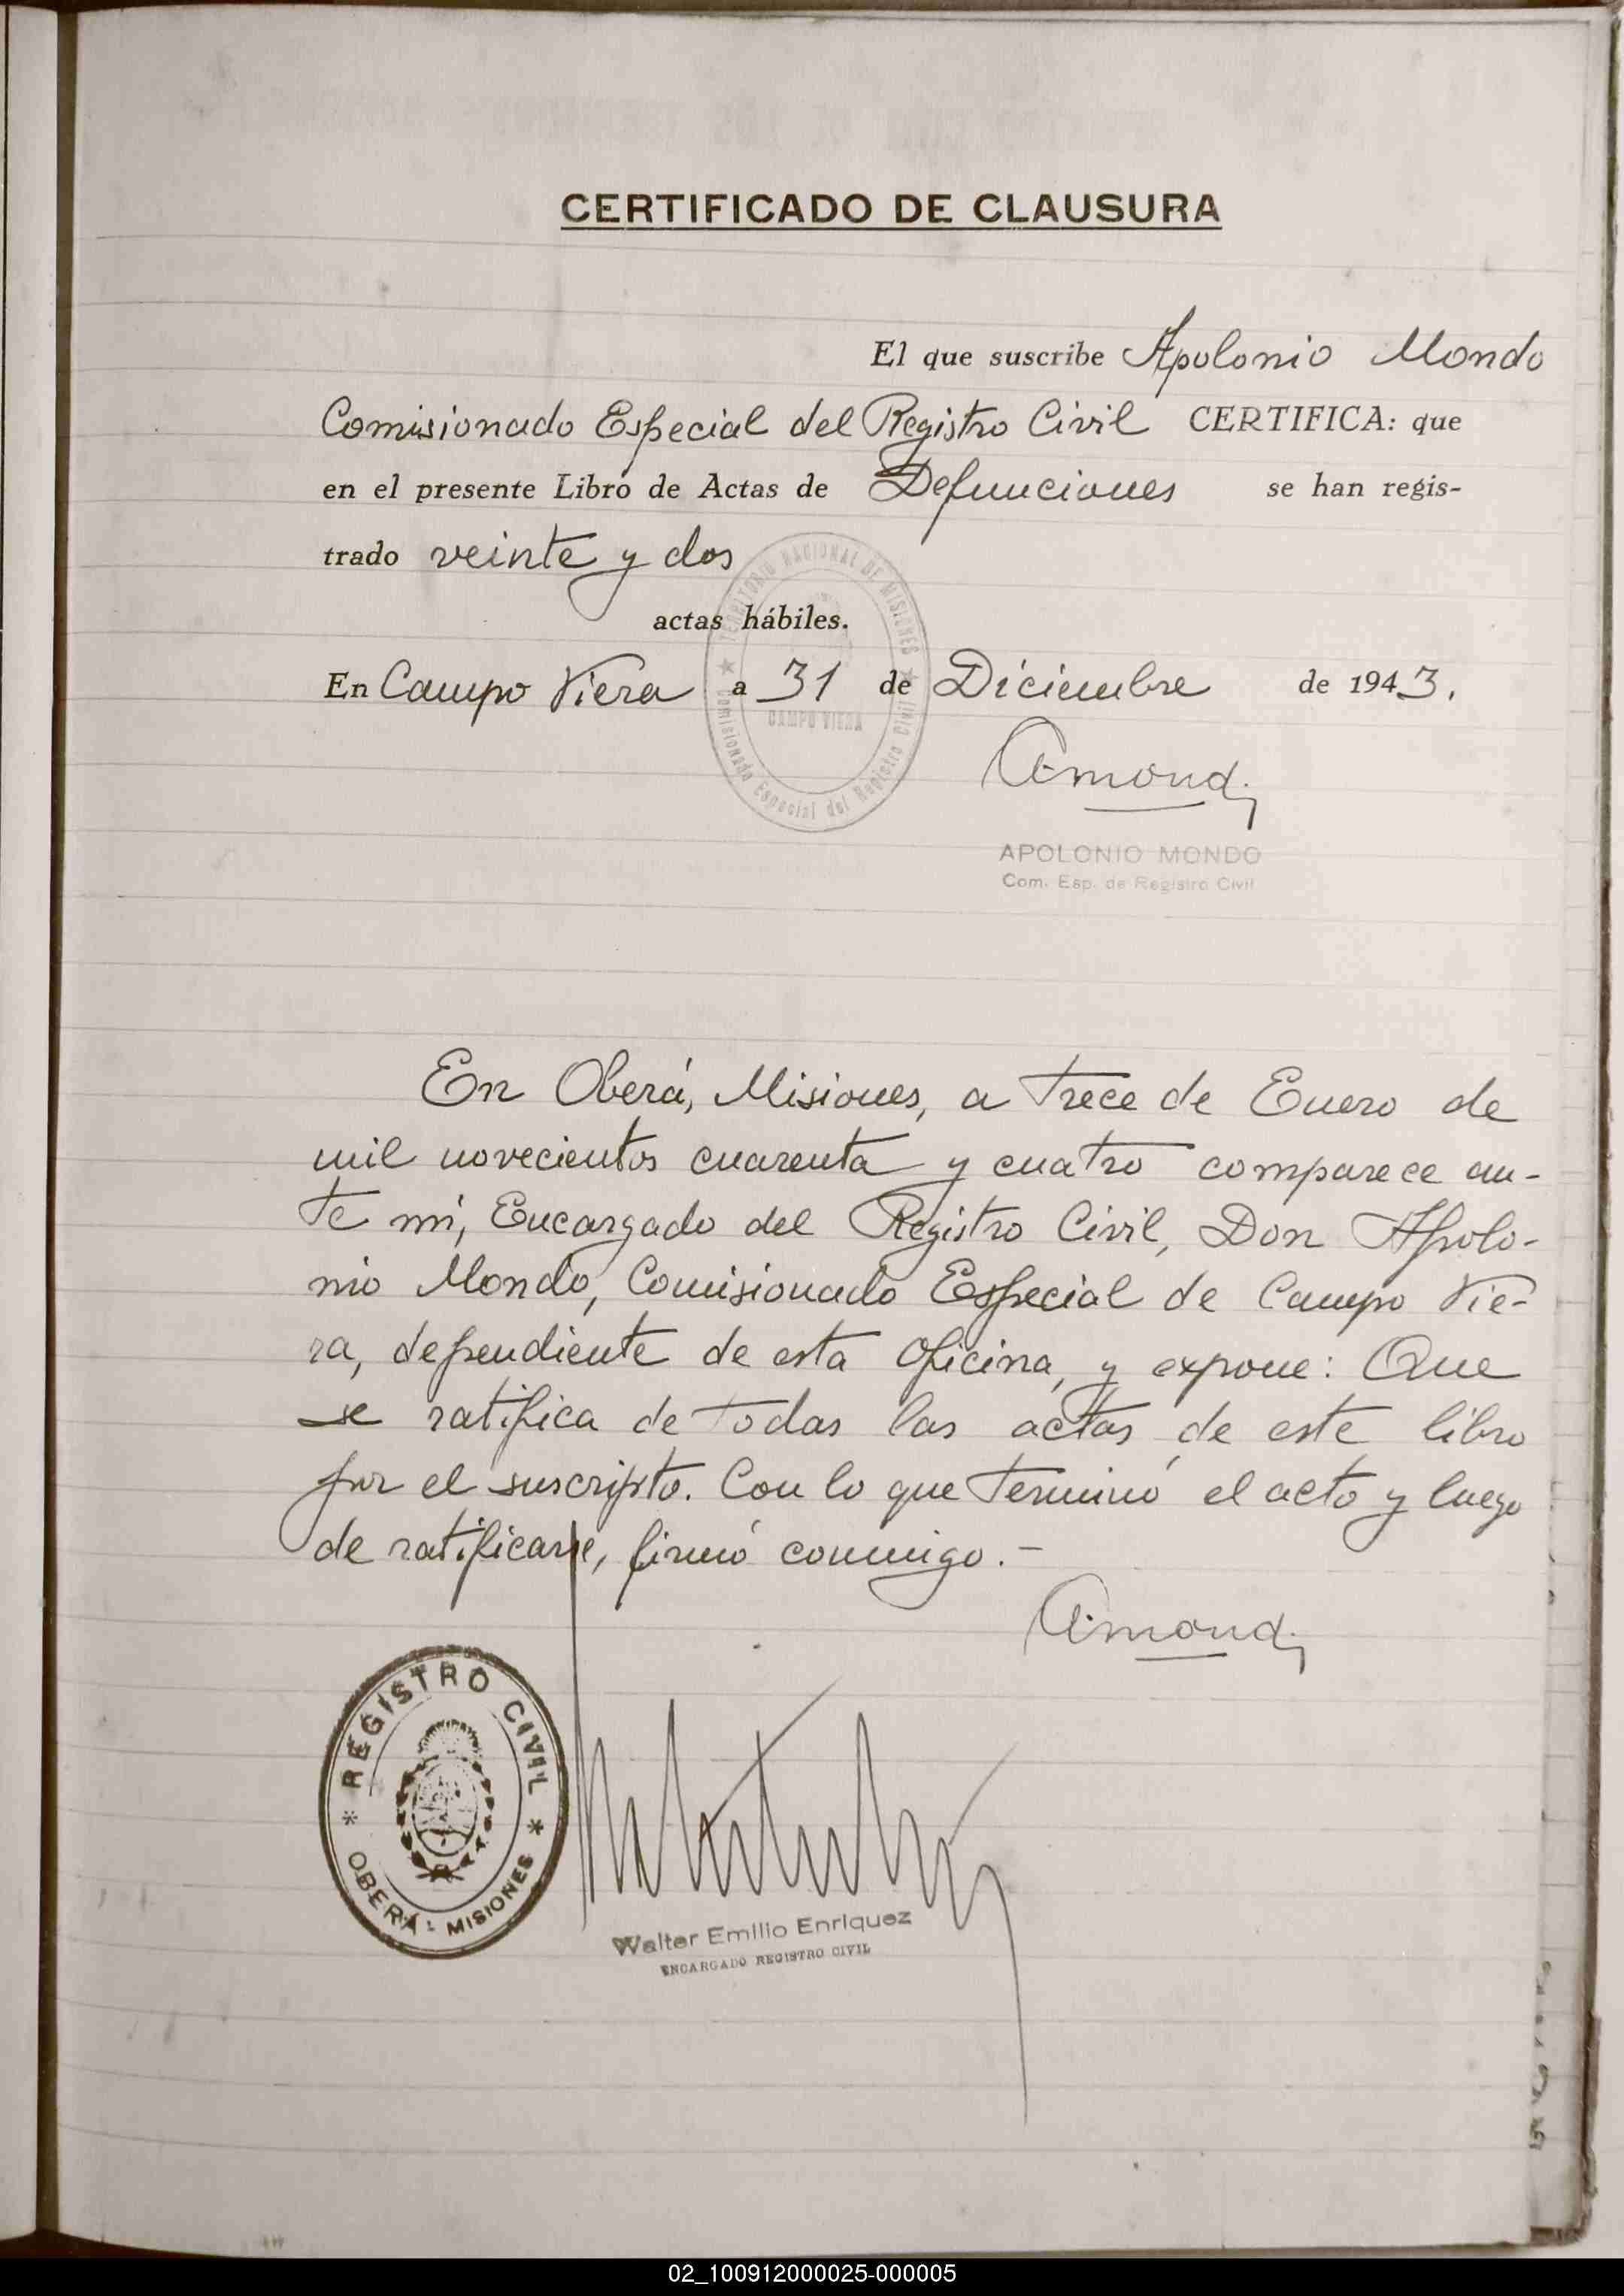 CERTIFICADO DE CLAUSURA
El que suscribe Apolonio Mondo
Comisionado Especial del Registro Civil CERTIFICA: que
en el presente Libro de Actas de Defunciones se han regis-
trado veinte y dos
actas hábiles.
En Campo Viera a 31 de Diciembre de 1943.
TERRITORIO NACIONAL DE MISIONES
CAMPO VIERA
Comisionado Especial del Registro Civil
Amond
APOLONIO MONDO
Com. Esp. de Registro Civil
En Oberá, Misiones, a trece de Enero de
mil novecientos cuarenta y cuatro comparece an-
te mí, Encargado del Registro Civil, Don Apolo-
nio Mondo, Comisionado Especial de Campo Vie-
ra, dependiente de esta Oficina, y expone: Que
se ratifica de todas las actas de este libro
por el suscripto. Con lo que terminó el acto y luego
de ratificarse, firmó conmigo.-
Amond
REGISTRO CIVIL
OBERÁ - MISIONES
Walter Emilio Enriquez
ENCARGADO REGISTRO CIVIL
02_100912000025-000005